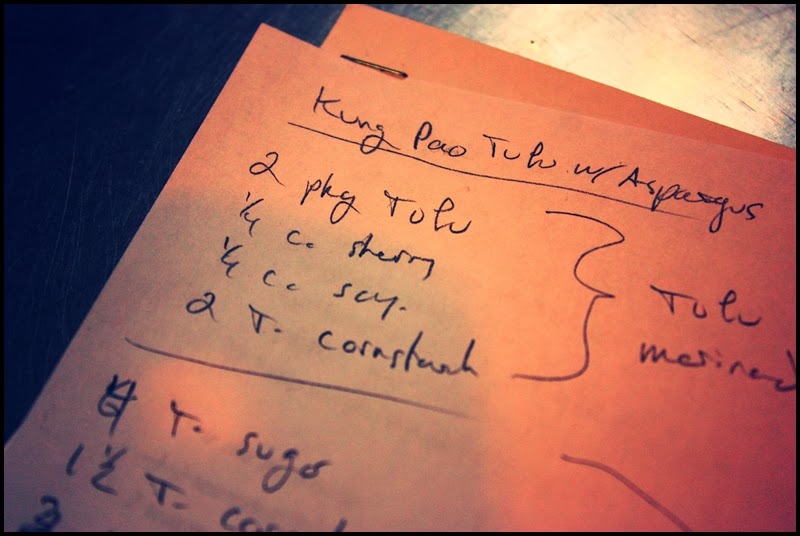 Kung Pao Tofu w/ Aspargus
2 pkg Tofu
1/4 c. sherry
1/4 c. soy.
2 T. cornstarch
Tofu
marinad
T. sugar
1 1/2 T.